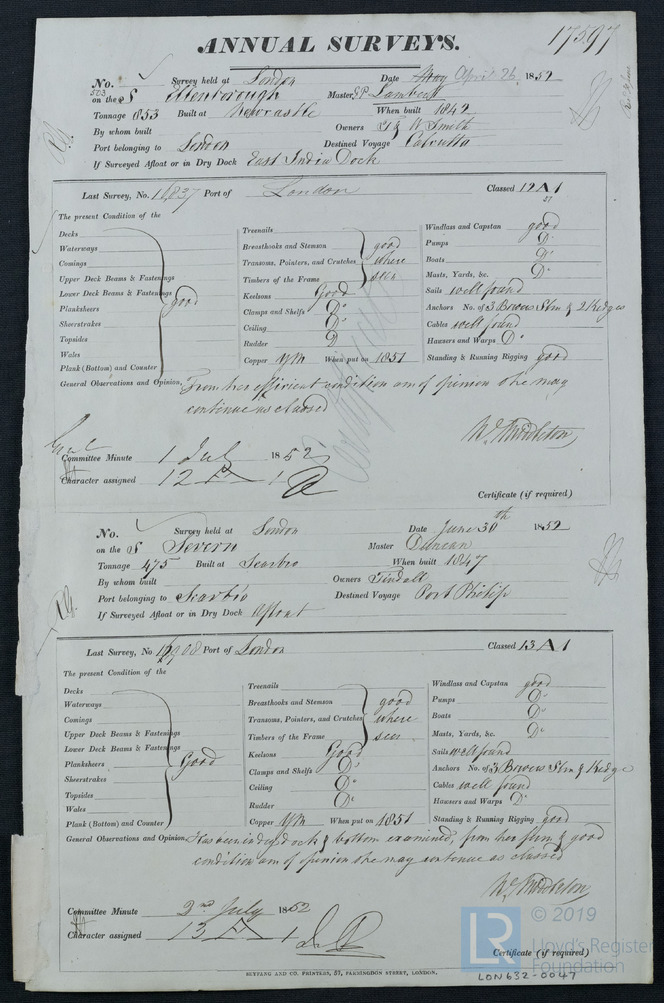 17597
ANNUAL SURVEYS.
No. Survey held at London Date April 26, 1852
503 on the S Ellenborough Master, GP Lambert
Tonnage 853 Built at Newcastle When built 1842
By whom built Owners T & W Smith
Port belonging to London Destined Voyage Calcutta
If Surveyed Afloat or in Dry Dock East India Dock
Last Survey, No. 16837 Port of London Classed 12 A 1
27
The present Condition of the
Decks
Waterways
Comings
Upper Deck Beams & Fastenings
Lower Deck Beams & Fastenings
Planksheers
Sheerstrakes
Topsides
Wales
Plank (Bottom) and Counter
good
Treenails
Breasthooks and Stemson
Transoms, Pointers, and Crutches
Timbers of the Frame
good where seen
Keelsons Good
Clamps and Shelfs Do
Ceiling Do
Rudder Do
Copper YM When put on 1851
Windlass and Capstan good
Pumps Do
Boats Do
Masts, Yards, &c. Do
Sails well found
Anchors No. of 3 Bowers Strm & 2 Kedges
Cables well found
Hawsers and Warps Do
Standing & Running Rigging good
General Observations and Opinion, From her efficient condition am of opinion she may
continue as classed
Wm Middleton
Committee Minute 1 July 1852
Character assigned 12 A 1
Certificate (if required)
No. Survey held at London Date June 30th 1852
on the S Severn Master Duncan
Tonnage 475 Built at Scarbro When built 1847
By whom built Owners Tindall
Port belonging to Scarbro Destined Voyage Port Philip
If Surveyed Afloat or in Dry Dock Afloat
Last Survey, No. Port of London Classed 13 A 1
The present Condition of the
Decks
Waterways
Comings
Upper Deck Beams & Fastenings
Lower Deck Beams & Fastenings
Planksheers
Sheerstrakes
Topsides
Wales
Plank (Bottom) and Counter
Good
Treenails
Breasthooks and Stemson
Transoms, Pointers, and Crutches
Timbers of the Frame
good where seen
Keelsons Good
Clamps and Shelfs Do
Ceiling Do
Rudder Do
Copper YM When put on 1851
Windlass and Capstan good
Pumps Do
Boats Do
Masts, Yards, &c. Do
Sails well found
Anchors No. of 3 Bowers Strm & Kedge
Cables well found
Hawsers and Warps Do
Standing & Running Rigging good
General Observations and Opinion, Has been in dry dock & bottom examined, from her firm & good
condition am of opinion she may continue as classed
Wm Middleton
Committee Minute 2nd July 1852
Character assigned 13 A 1
Certificate (if required)
SEYFANG AND CO. PRINTERS, 57, FARRINGDON STREET, LONDON.
LR © 2019
Lloyd's Register
Foundation
LON632-0047